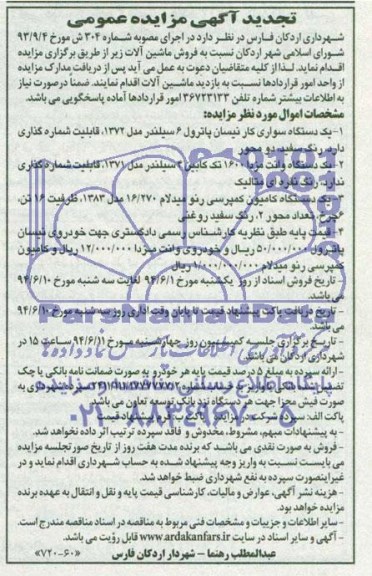 تجدید آگهی مزایده عمومی
شهرداری اردکان فارس در نظر دارد در اجرای مصوبه شماره ۳۰۴ ش مورخ ۹۳/۹/۴
شورای اسلامی شهر اردکان نسبت به فروش ماشین آلات زیر از طریق برگزاری مزایده
اقدام نماید. لذا از کلیه متقاضیان دعوت به عمل می آید پس از دریافت مدارک مزایده
از واحد امور قراردادها نسبت به بازدید ماشین آلات اقدام نمایند. ضمنا درصورت نیاز
به اطلاعات بیشتر شماره تلفن ۳۶۷۲۳۱۲۳ امور قراردادها آماده پاسخگویی می باشد.
مشخصات اموال مورد نظر مزایده:
۱-یک دستگاه سواری کار نیسان پاترول ۶ سیلندر مدل ۱۳۷۲، قابلیت شماره گذاری
دارد، رنگ سفید، دو محور
۲-یک دستگاه وانت مزدا ۱۶۰۰ تک کابین ۴ سیلندر مدل ۱۳۷۱، قابلیت شماره گذاری
ندارد، رنگ نقره ای متالیک
یک دستگاه کامیون کمپرسی رنو میدلام ۱۶/۲۷۰ مدل ۱۳۸۳، ظرفیت ۱۶ تن،
۶چرخ، تعداد محور ۲، رنگ سفید روغنی
- قیمت پایه طبق نظریه کارشناس رسمی دادگستری جهت خودروی نیسان
پاترول ۵۰/۰۰۰/۰۰۰ ریال و خودروی وانت مزدا ۱۲/۰۰۰/۰۰۰ ریال و کامیون
کمپرسی رنو میدلام ۱/۰۰۰/۰۰۰/۰۰۰ ریال
- تاریخ فروش اسناد از روز یکشنبه مورخ ۹۴/۶/۱ لغایت سه شنبه مورخ ۹۴/۶/۱۰
می باشد.
- تاریخ دریافت پاکت پیشنهاد قیمت تا پایان وقت اداری روز سه شنبه مورخ ۹۴/۶/۱۰
می باشد.
- تاریخ برگزاری جلسه کمیسیون روز چهارشنبه مورخ ۹۴/۶/۱۱ ساعت ۱۵ در
شهرداری اردکان می باشد.
- ارائه سپرده به مبلغ ۵ درصد قیمت پایه هر خودرو به صورت ضمانت نامه بانکی یا چک
شهرداری به
صورت فیش مجزا جهت هر دستگاه نزد بانک توسعه تعاون می باشد.
پاکت الف: سپرده شرکت در مزایده پاکت ب: پیشنهاد قیمت
- به پیشنهادات مبهم، مشروط، مخدوش و فاقد سپرده ترتیب اثر داده نخواهد شد.
-فروش به صورت نقدی می باشد که برنده مدت هفت روز از تاریخ صورتجلسه مزایده
می بایست نسبت به واریز وجه پیشنهاد شده به حساب شهرداری اقدام نماید و در
غیراینصورت سپرده به نفع شهرداری ضبط خواهد شد.
- هزینه نشر آگهی، عوارض و مالیات، کارشناسی قیمت پایه و نقل و انتقال به عهده برنده
مزایده خواهد بود.
-سایر اطلاعات و جزییات و مشخصات فنی مربوط به مناقصه در اسناد مناقصه مندرج است.
-آگهی و سایر اسناد در سایت www.ardakanfars.ir قابل رویت می باشد.
عبدالمطلب رهنما - شهردار اردکان فارس «۷۲۰-۶۰»
ParsNamadData
پایگاه اطلاع رسانی
۰۲۱-۸۸۳۴۹۶۷۰-۵